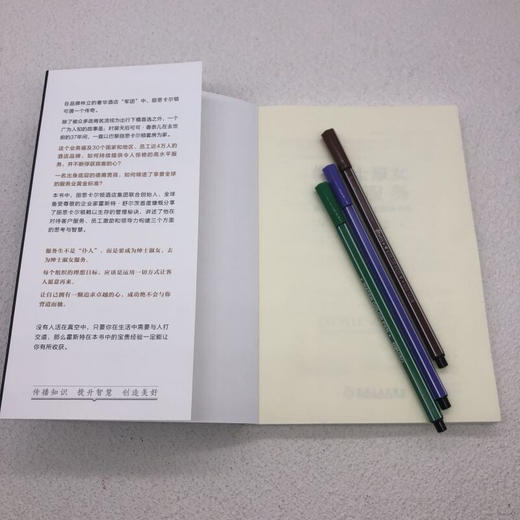 在品牌林立的奢华酒店“军团”中，丽思卡尔顿
可谓一个传奇。
除了被众多政商名流视为出行下榻首选之外，一个
广为人知的故事是，时装天后可可·香奈儿在去世
前的37年间，一直以巴黎丽思卡尔顿套房为家。
这个业务遍及30个国家和地区、员工达4万人的
酒店品牌，如何持续提供令人惊艳的高水平服
务，并不断俘获顾客的心？
一名出身底层的德裔男孩，如何缔造了享誉全球
的服务业黄金标准？
本书中，丽思卡尔顿酒店集团联合创始人、全球
备受尊敬的企业家霍斯特·舒尔茨首度慷慨分享
了丽思卡尔顿赖以生存的管理秘诀，讲述了他在
对待客户服务、员工激励和领导力构建三个方面
的思考与智慧。
服务生不是“仆人”，而是要成为绅士淑女，去
为绅士淑女服务。
每个组织的理想目标，应该是运用一切方式让客
人愿意再来。
让自己拥有一颗追求卓越的心，成功绝不会与你
背道而驰。
没有人活在真空中，只要你在生活中需要与人打
交道，那么霍斯特在本书中的宝贵经验一定能让
你有所收获。
传播知识 提升智慧 创造美好